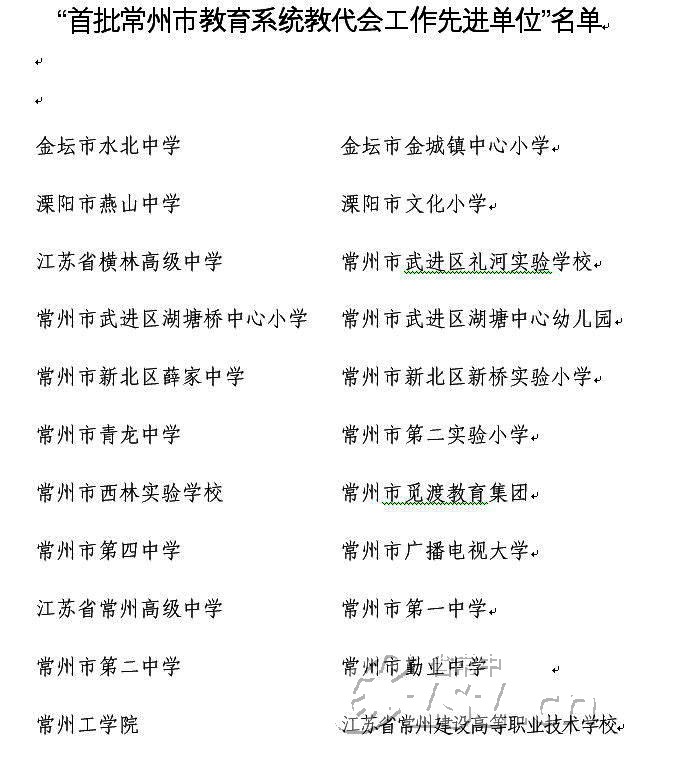 “首批常州市教育系统教代会工作先进单位”名单
金坛市水北中学 金坛市金城镇中心小学
溧阳市燕山中学 溧阳市文化小学
江苏省横林高级中学 常州市武进区礼河实验学校
常州市武进区湖塘桥中心小学 常州市武进区湖塘中心幼儿园
常州市新北区薛家中学 常州市新北区新桥实验小学
常州市青龙中学 常州市第二实验小学
常州市西林实验学校 常州市觅渡教育集团
常州市第四中学 常州市广播电视大学
江苏省常州高级中学 常州市第一中学
常州市第二中学 常州市勤业中学
常州工学院 江苏省常州建设高等职业技术学校